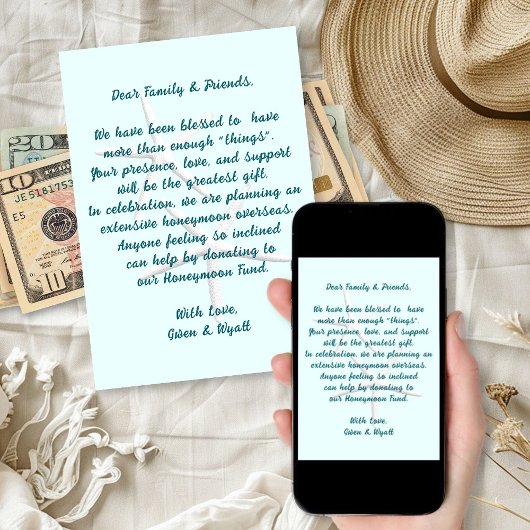 Dear Family & Friends,
We have been blessed to have
more than enough "things".
Your presence, love, and support
will be the greatest gift.
In celebration, we are planning an
extensive honeymoon overseas.
Anyone feeling so inclined
can help by donating to
our Honeymoon Fund.
With Love,
Gwen & Wyatt
20
10
JE5181753
E5
10
Dear Family & Friends,
We have been blessed to have
more than enough "things".
Your presence, love, and support
will be the greatest gift.
In celebration, we are planning an
extensive honeymoon overseas.
Anyone feeling so inclined
can help by donating to
our Honeymoon Fund.
With Love,
Gwen & Wyatt